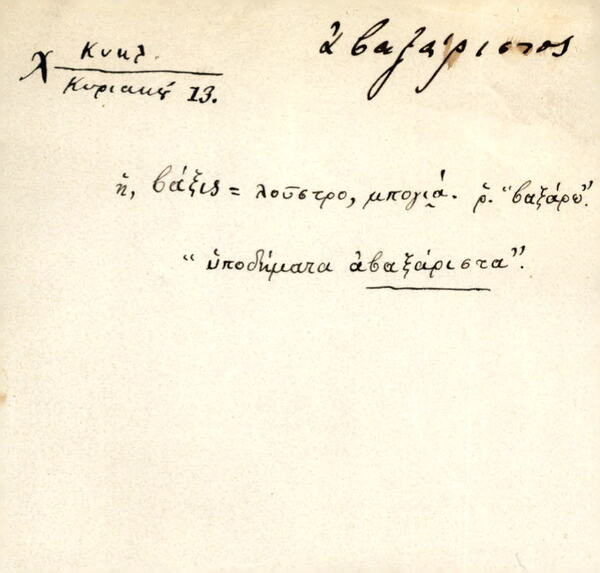 ἀβαξάριστος
Χ Κυκλ.
Κυριακού 13.
ἡ, βάξις = λοῦστρο, μπογιά. ῥ. "βαξάρω".
"ὑποδήματα ἀβαξάριστα".